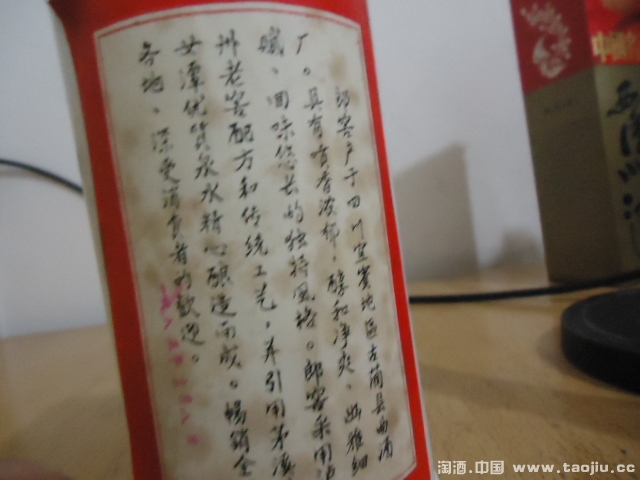 郎窖产于四川宜宾地区古蔺县曲酒
厂。具有喷香浓郁，醇和净爽、幽雅细
腻、回味悠长的独特风格。郎窖采用泸
州老窖配方和传统工艺，并引用茅溪
女潭优质泉水精心酿造而成。畅销全
各地，深受消费者的欢迎。
淘酒.中国 www.taojiu.cc